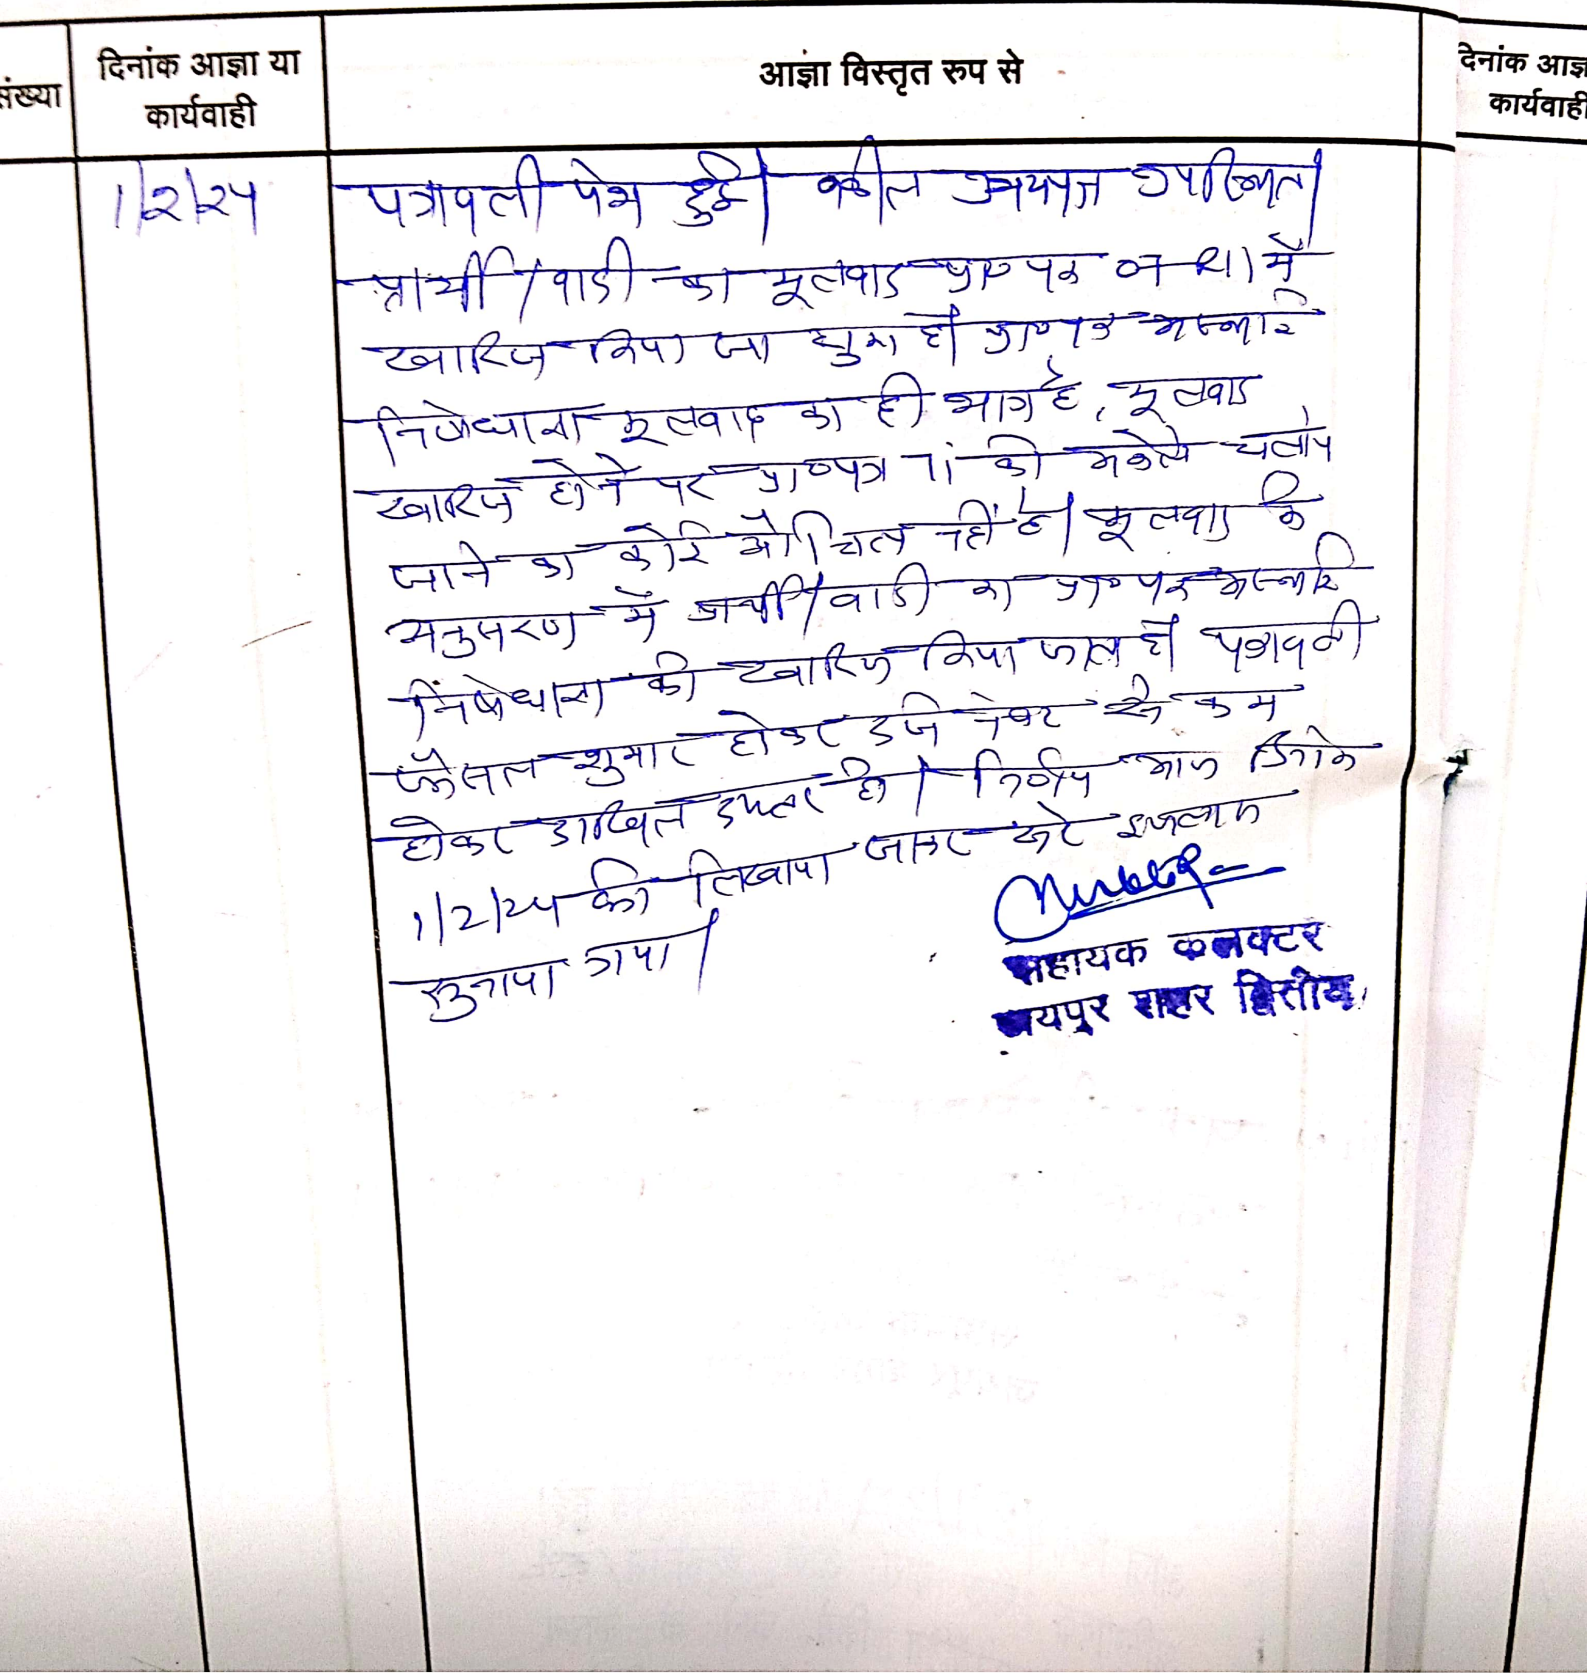 संख्या
दिनांक आज्ञा या
कार्यवाही
आज्ञा विस्तृत रुप से
दिनांक आज्ञ
कार्यवाही
1/2/24
पत्रावली पेश हुई। वकील उभयपक्ष उपस्थित।
प्रार्थी/वादी का मूलवाद प्रा०पत्र में
खारिज किया जा चुका है। प्रा०पत्र अस्थाई
निषेधाज्ञा मूलवाद का ही भाग है, मूलवाद
खारिज होने पर प्रा०पत्र T.I. को अकेले चलाये
जाने का कोई औचित्य नहीं है। मूलवाद के
अनुसरण में प्रार्थी/वादी का प्रा०पत्र अस्थाई
निषेधाज्ञा को खारिज किया जाता है। पत्रावली
फैसल शुमार होकर दर्ज नंबर से कम
होकर दाखिल दफ्तर हो। निर्णय आज दिनांक
1/2/24 को लिखाया जाकर सरे इजलास
सुनाया गया।
सहायक कलक्टर
जयपुर शहर द्वितीय